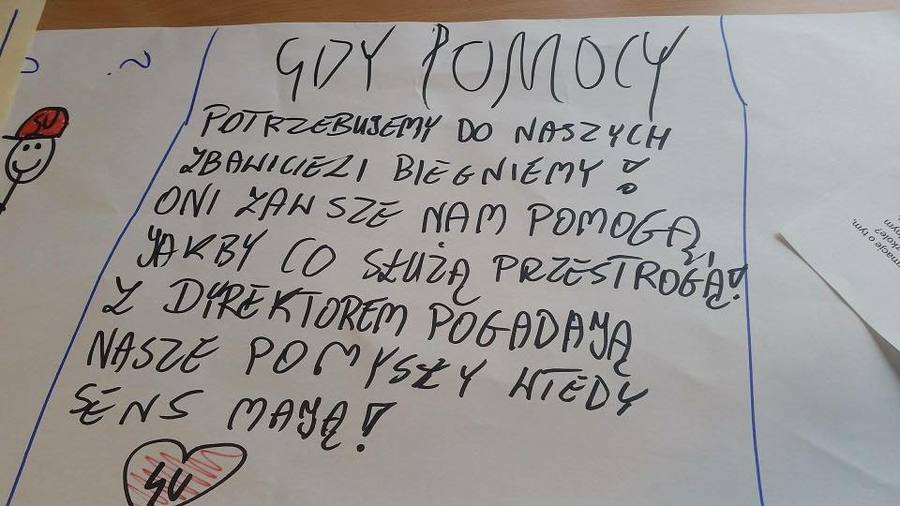 GDY POMOCY
POTRZEBUJEMY DO NASZYCH
ZBAWICIELI BIEGNIEMY!
ONI ZAWSZE NAM POMOGĄ,
JAKBY CO SŁUŻĄ PRZESTROGĄ!
Z DYREKTOREM POGADAJĄ
NASZE POMYSŁY WTEDY
SENS MAJĄ!
SU
SU
rmacje o tym,